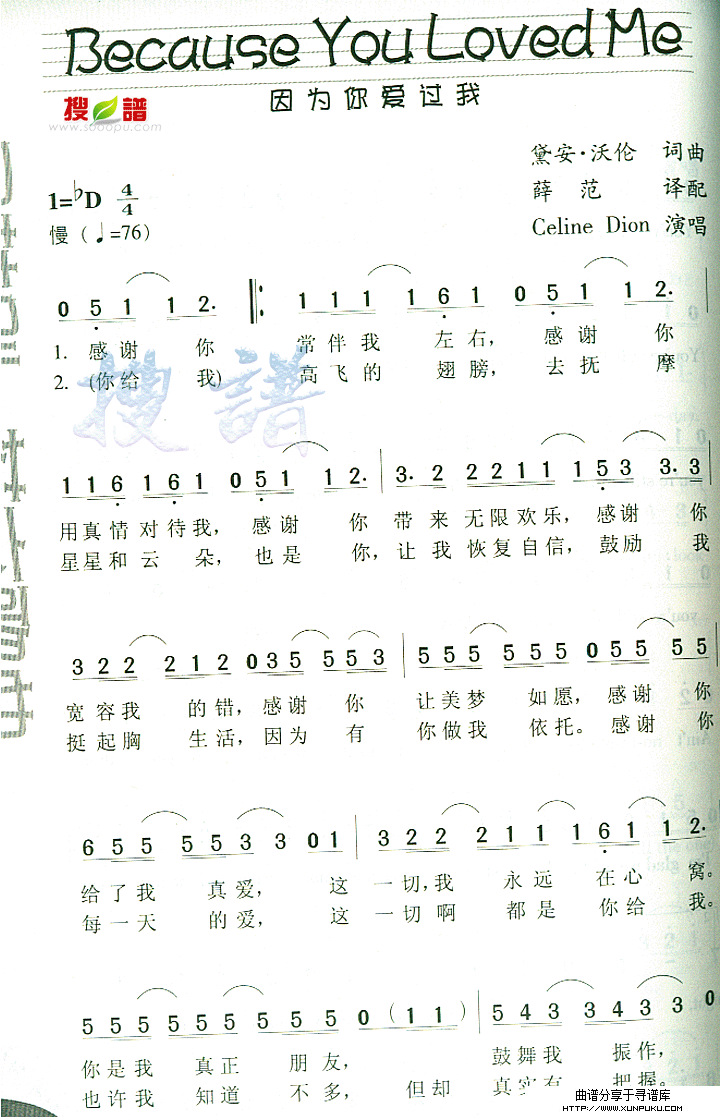 Because You Loved Me
搜谱
www.sooopu.com
因为你爱过我
黛安·沃伦 词曲
1=♭D 4/4
薛范 译配
慢（♩=76）
Celine Dion 演唱
0 5 1 1 2. 1 1 1 1 6 1 0 5 1 1 2.
1. 感谢 你 常伴我 左右，感谢 你
2. (你给 我) 高飞的 翅膀，去抚 摩
1 1 6 1 6 1 0 5 1 1 2. 3. 2 2 2 1 1 1 5 3 3. 3
用真情对待我，感谢 你 带来无限欢乐，感谢 你
星星和云 朵，也是 你，让我 恢复自信，鼓励 我
3 2 2 2 1 2 0 3 5 5 5 3 5 5 5 5 5 5 0 5 5 5 5
宽容我 的错，感谢 你 让美梦 如愿，感谢 你
挺起胸 生活，因为 有 你做我 依托。感谢 你
6 5 5 5 5 3 3 0 1 3 2 2 2 1 1 1 6 1 1 2.
给了我 真爱，这 一切，我 永远 在心 窝。
每一天 的爱，这 一切啊 都是 你给 我。
5 5 5 5 5 5 5 5 5 0 (1 1) 5 4 3 3 4 3 3 0
你是我 真正 朋友， 鼓舞我 振作，
也许我 知道 不多，但却 真实有 把握。
曲谱分享于寻谱库
HTTP://WWW.XUNPUKU.COM